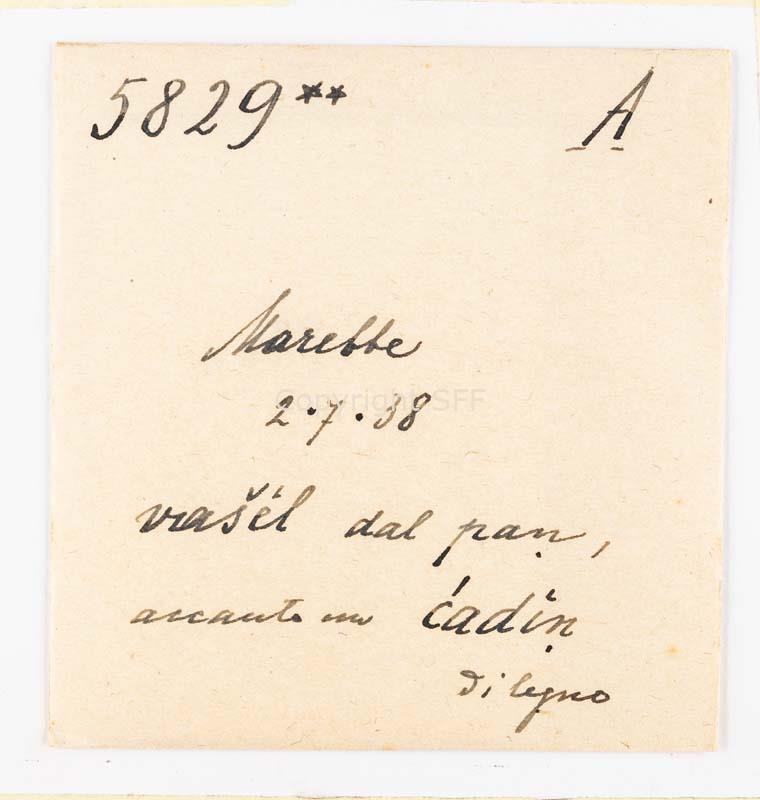 5829** A
Marebbe
Copyright SFF
2·7·38
vašél dal paṇ,
accanto un ćadiṇ
di legno